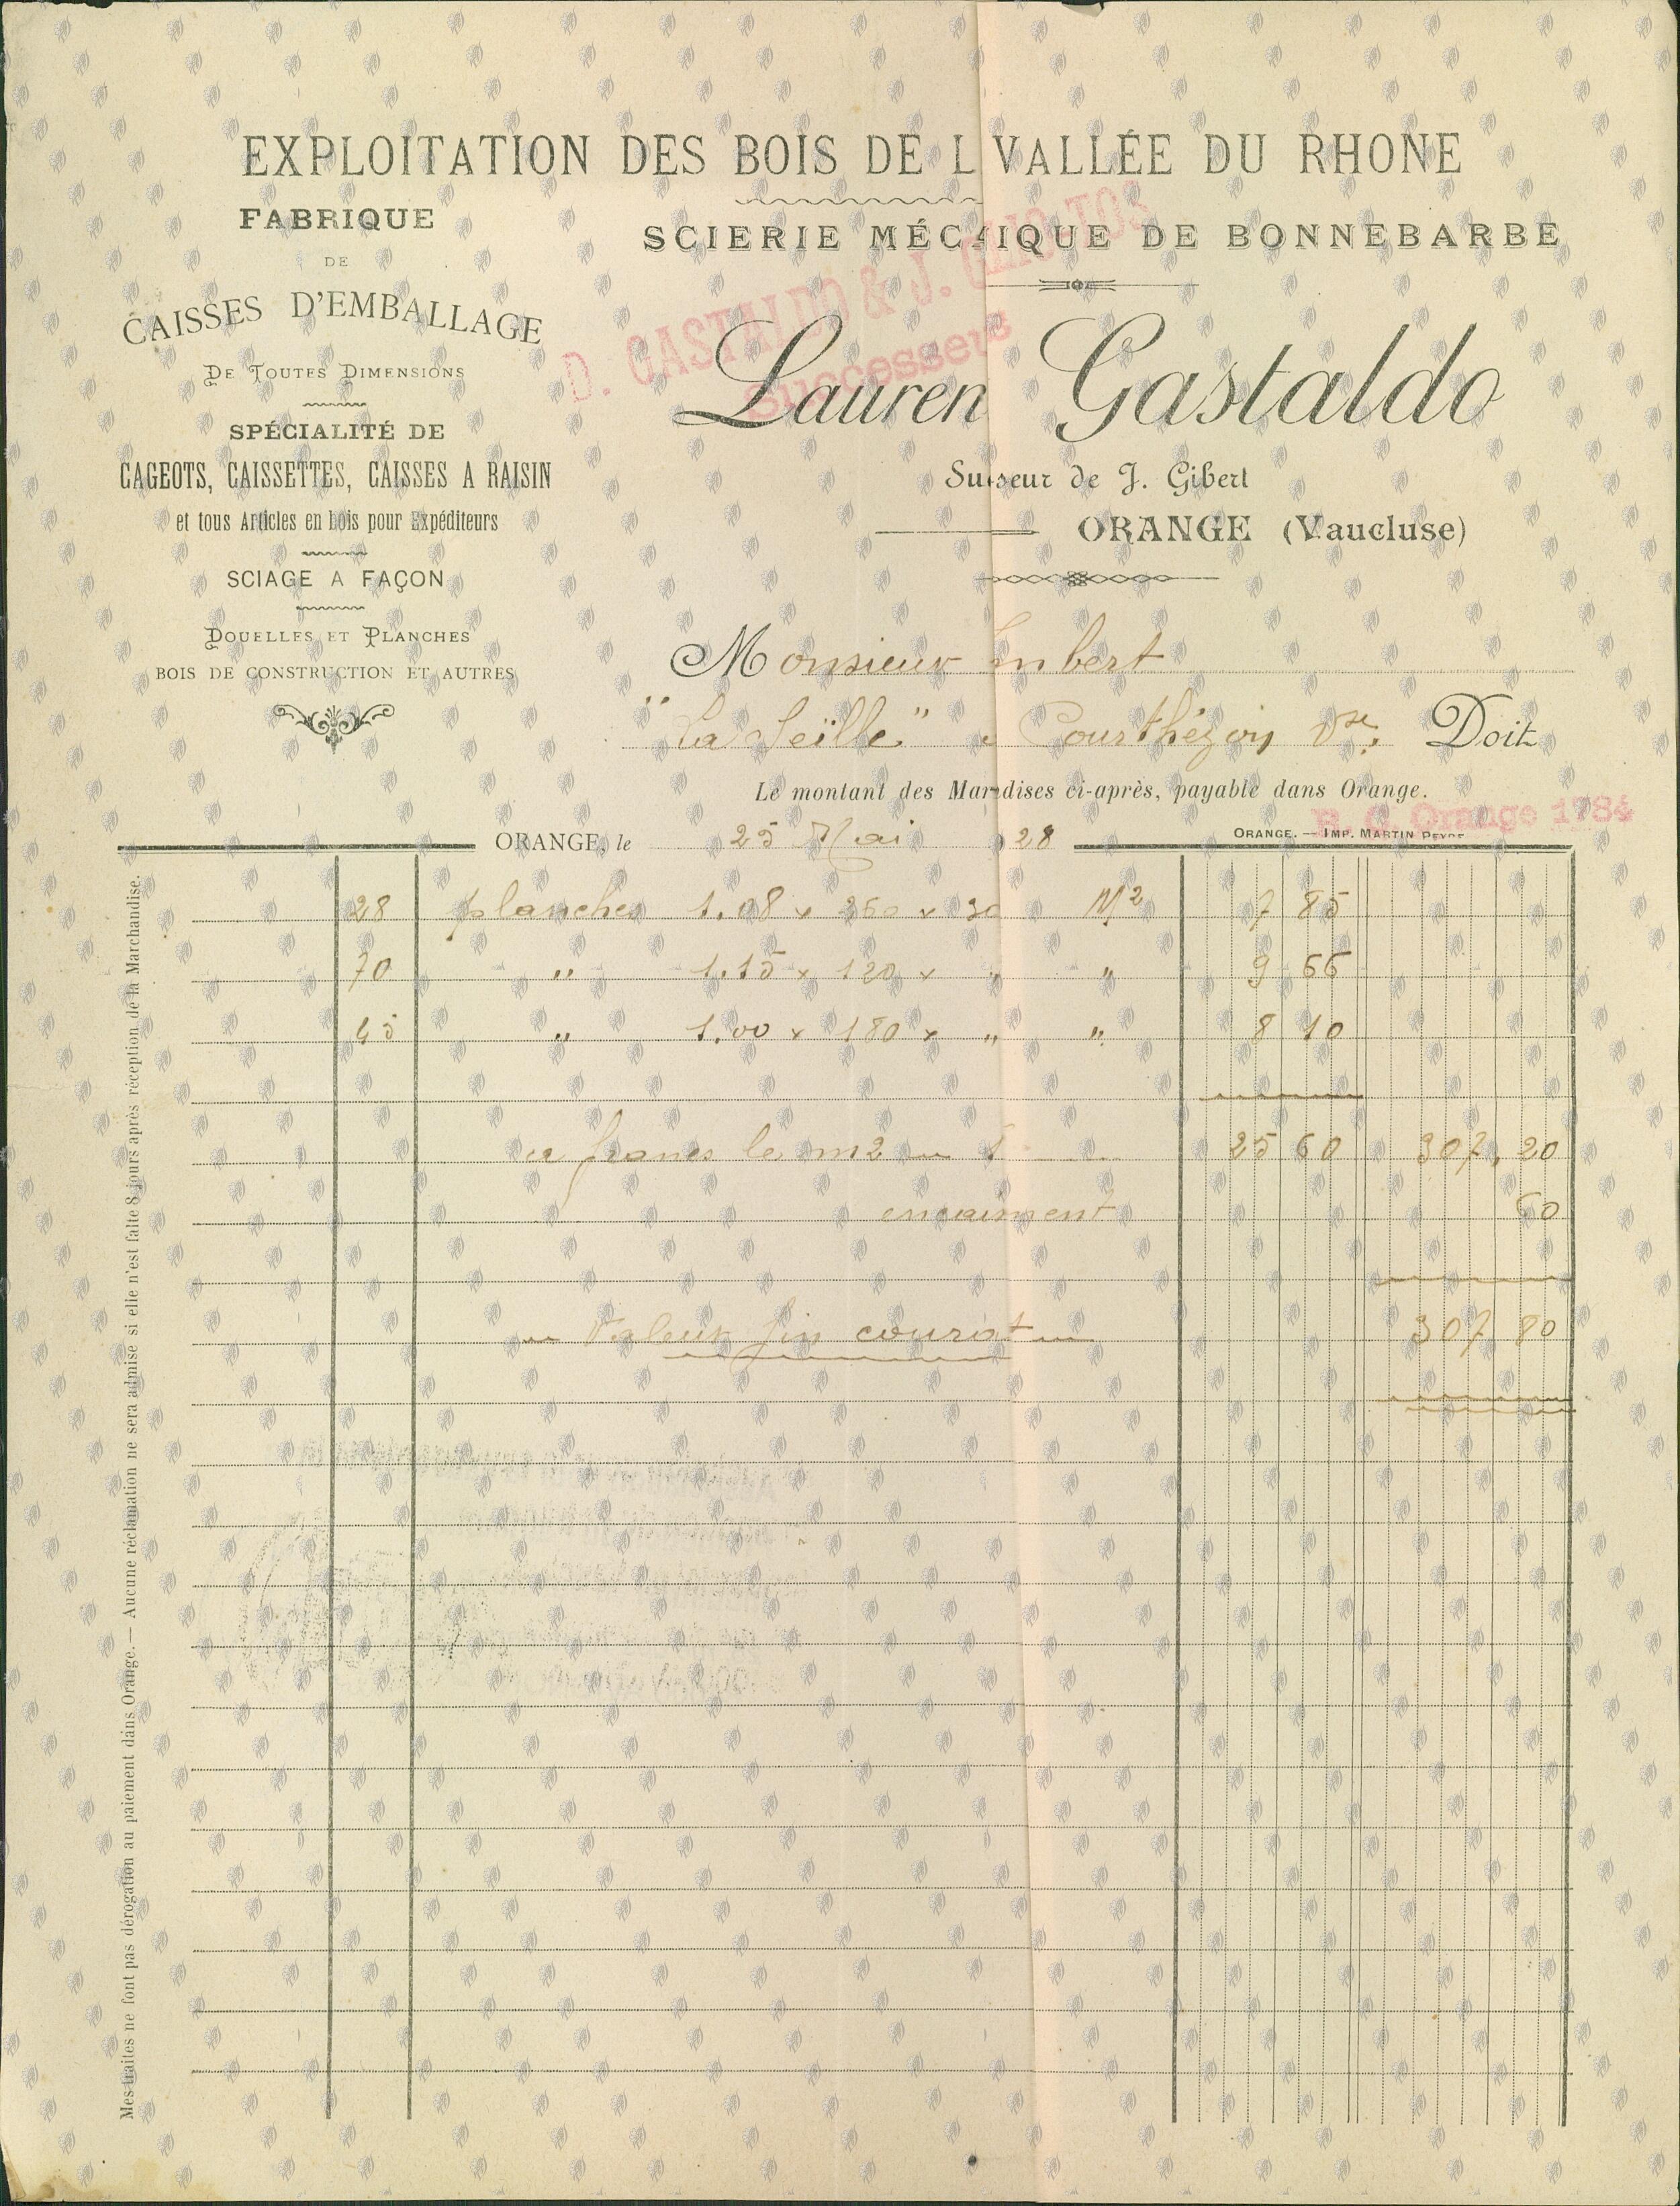 EXPLOITATION DES BOIS DE L VALLÉE DU RHONE
FABRIQUE
DE
CAISSES D'EMBALLAGE
DE TOUTES DIMENSIONS
SPÉCIALITÉ DE
CAGEOTS, CAISSETTES, CAISSES A RAISIN
et tous Articles en bois pour Expéditeurs
SCIAGE A FAÇON
DOUELLES ET PLANCHES
BOIS DE CONSTRUCTION ET AUTRES
SCIERIE MÉC IQUE DE BONNEBARBE
D. GASTALDO & J.
Successeurs
Lauren Gastaldo
Su seur de J. Gibert
ORANGE (Vaucluse)
Monsieur Imbert
"La Seïlle" Courthézon Vse. Doit
Le montant des Mar dises ci-après, payable dans Orange.
R. C. Orange 1784
ORANGE, le 25 Mai 28
ORANGE. — IMP. MARTIN PEYRE
28 planches 1.08 x 260 x 30 M2 7 85
70 " 1.15 x 120 x " " 9 66
45 " 1.00 x 180 x " " 8 10
francs le m2 25 60 307,20
60
Valeur fin courant 307 80
Mes traites ne font pas dérogation au paiement dans Orange. — Aucune réclamation ne sera admise si elle n'est faite 8 jours après réception de la Marchandise.